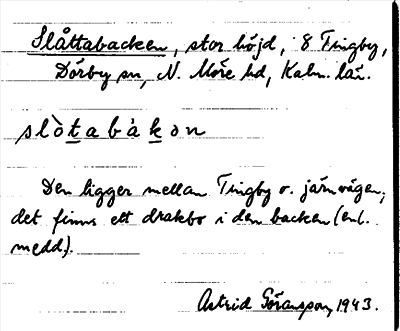 Slåttabacken, stor höjd, 8 Tingby,
Dörby sn, N. Möre hd, Kalm. län.
slòtabàkən
Den ligger mellan Tingby o. järnvägen;
det finns ett drakbo i den backen (enl.
medd.).
Astrid Göransson, 1943.